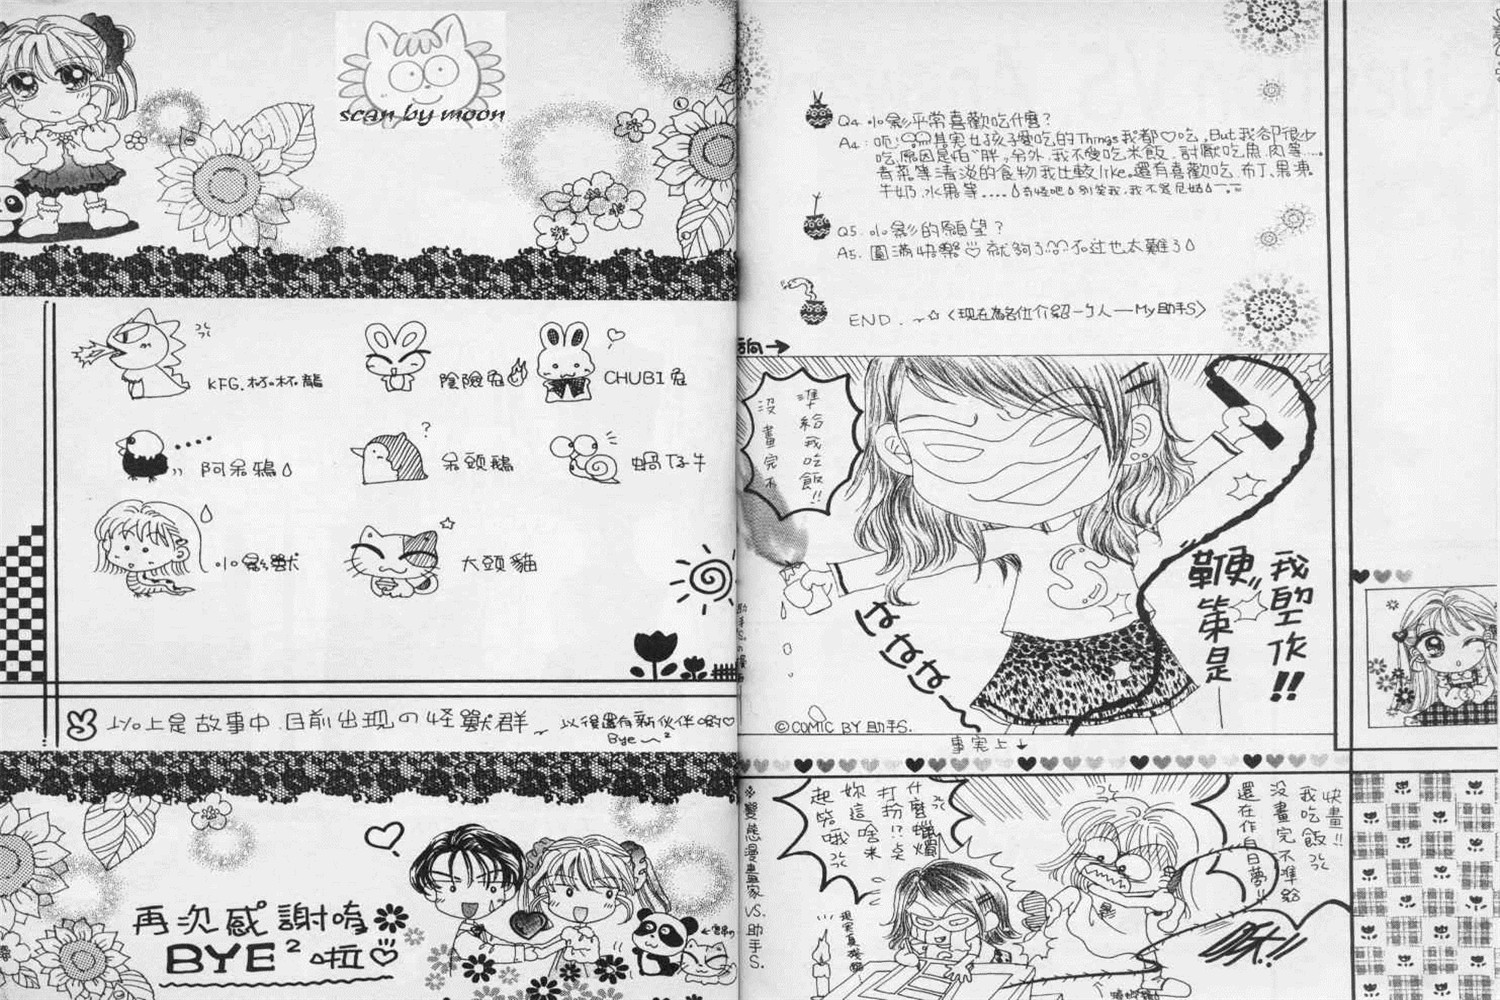 scan by moon
KFG.杯杯龍
陰險兔
CHUBI兔
阿呆鴉
呆頭鵝
蝸仔牛
小影獸
大頭貓
以上是故事中.目前出現の怪獸群~
以後還有新伙伴喲♡
Bye~²
再次感謝唷
BYE²啦
Q4.小影平常喜歡吃什麼?
A4:呃!其実女孩子愛吃的Things我都♡吃,But我卻很少
吃,原因是怕"胖",另外,我不愛吃米飯,討厭吃魚.肉等....
青菜等清淡的食物我比較like。還有喜歡吃.布丁、果凍
牛奶.水果等....
Q5.小影的願望?
A5.圓滿快樂♡就夠了 不过也太難了
END.~☆〈現在為各位介紹一ㄅ人——My助手S〉
方向→
沒畫完不
準給我吃飯!!
我到作!!
鞭策是
©COMIC BY 助手S.
事実上↓
※變態漫畫家VS.助手S.
什麼蠟燭
打扮!?桌
妳這啥米
起臨哦
快畫!!
沒畫完不準給
我吃飯
還在作白日夢!!